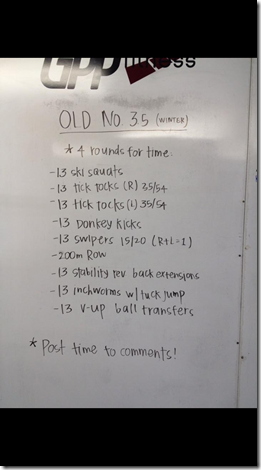 GPP
OLD NO 35 (WINTER)
* 4 rounds for time:
-13 ski squats
-13 tick tocks (R) 35/54
-13 tick tocks (L) 35/54
-13 Donkey kicks
-13 swipers 15/20 (R+L=1)
-200m Row
-13 stability rev back extensions
-13 inchworms w/tuck jump
-13 V-up ball transfers
* Post time to comments!